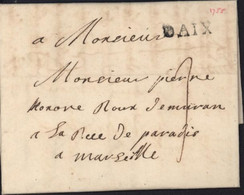 1755
a Monsieur DAIX
Monsieur pierre
honoré Roux demuran
a La Rue de paradis
a marseille